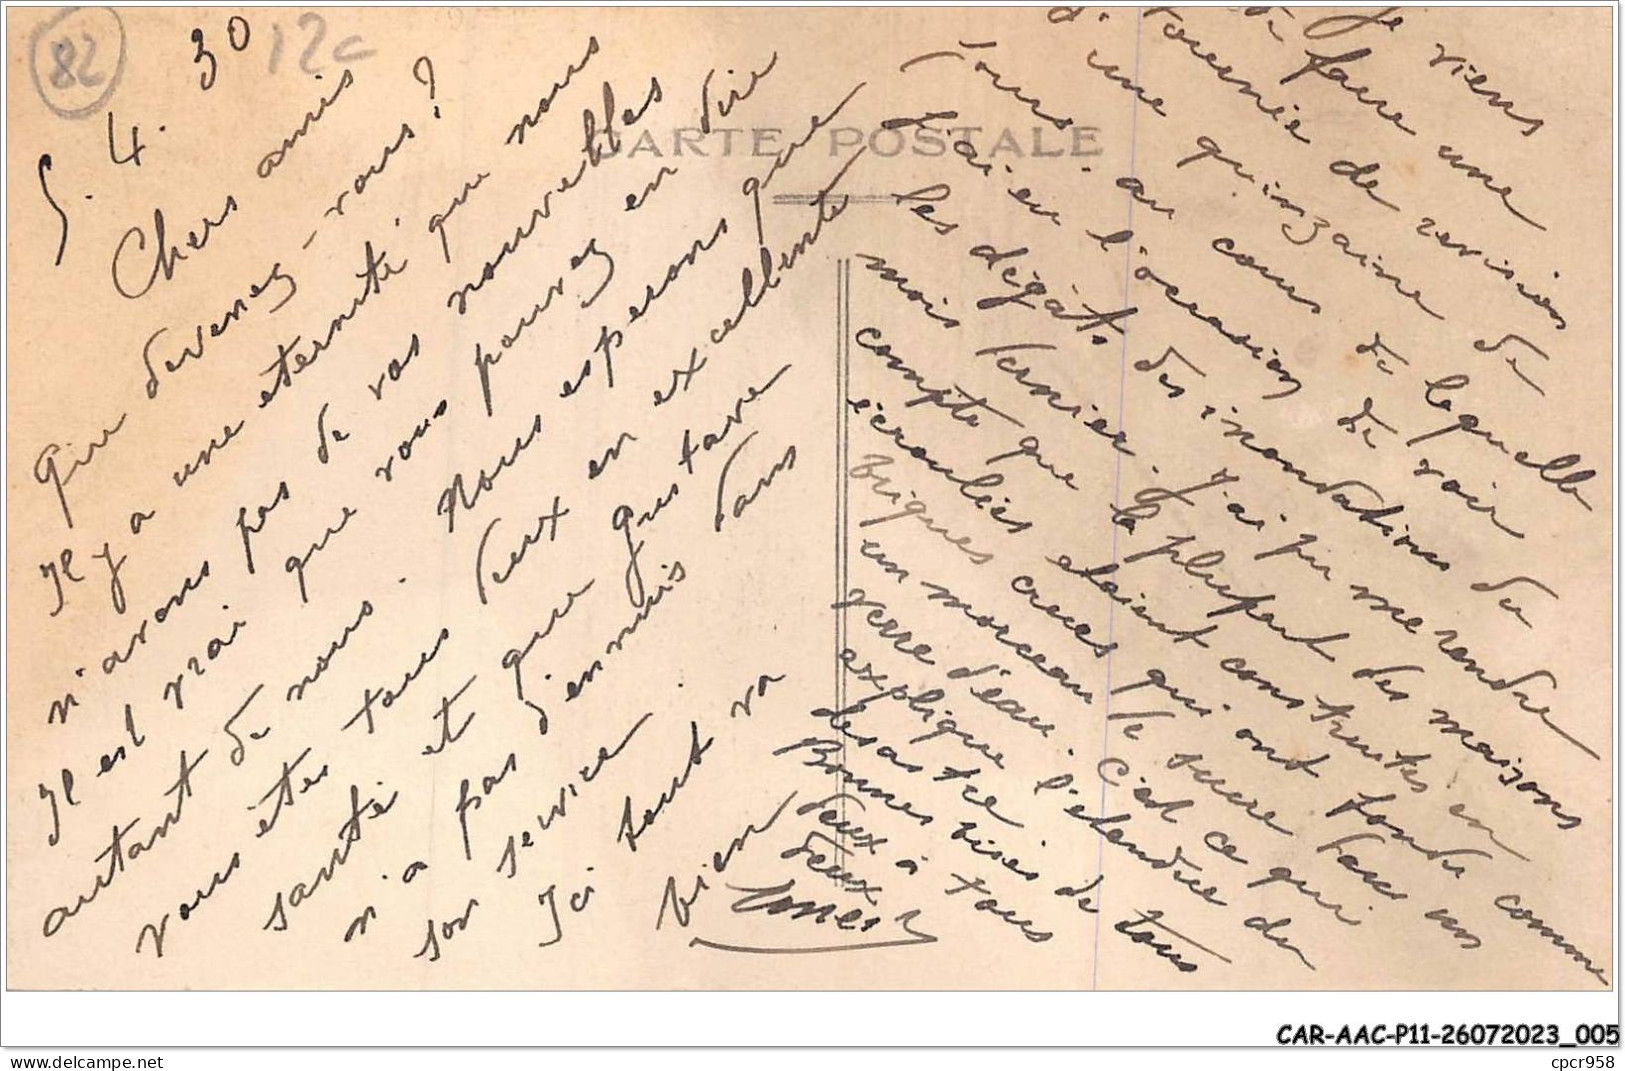 82
12c
5. 4. 30
CARTE POSTALE
Chers amis
Que devenez-vous ?
Il y a une eternité que nous
n'avons pas de vos nouvelles
Il est vrai que vous pourrez en dire
autant de nous. Nous esperons que
vous êtes tous deux en excellente
santé et que Gustave
n'a pas d'ennuis dans
son service
Ici tout va
bien
Je viens
de faire une
tournée de revision
d'une quinzaine de
jours. au cours de laquelle
j'ai eu l'occasion de voir
les dégâts des inondations du
mois dernier. J'ai pu me rendre
compte que la plupart des maisons
écroulées etaient construites en
briques crues qui ont fondu comme
un morceau de sucre dans un
verre d'eau. C'est ce qui
explique l'etendue du
desastre
Bonnes bises de tous
deux à tous
deux
CAR-AAC-P11-26072023_005
delcampe.net
cpcr958